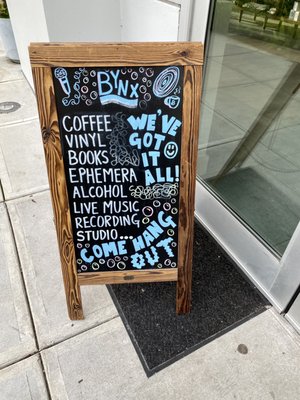 BYNX
COFFEE
VINYL
BOOKS
EPHEMERA
ALCOHOL
LIVE MUSIC
RECORDING
STUDIO...
WE'VE
GOT
IT
ALL!
COME HANG
OUT